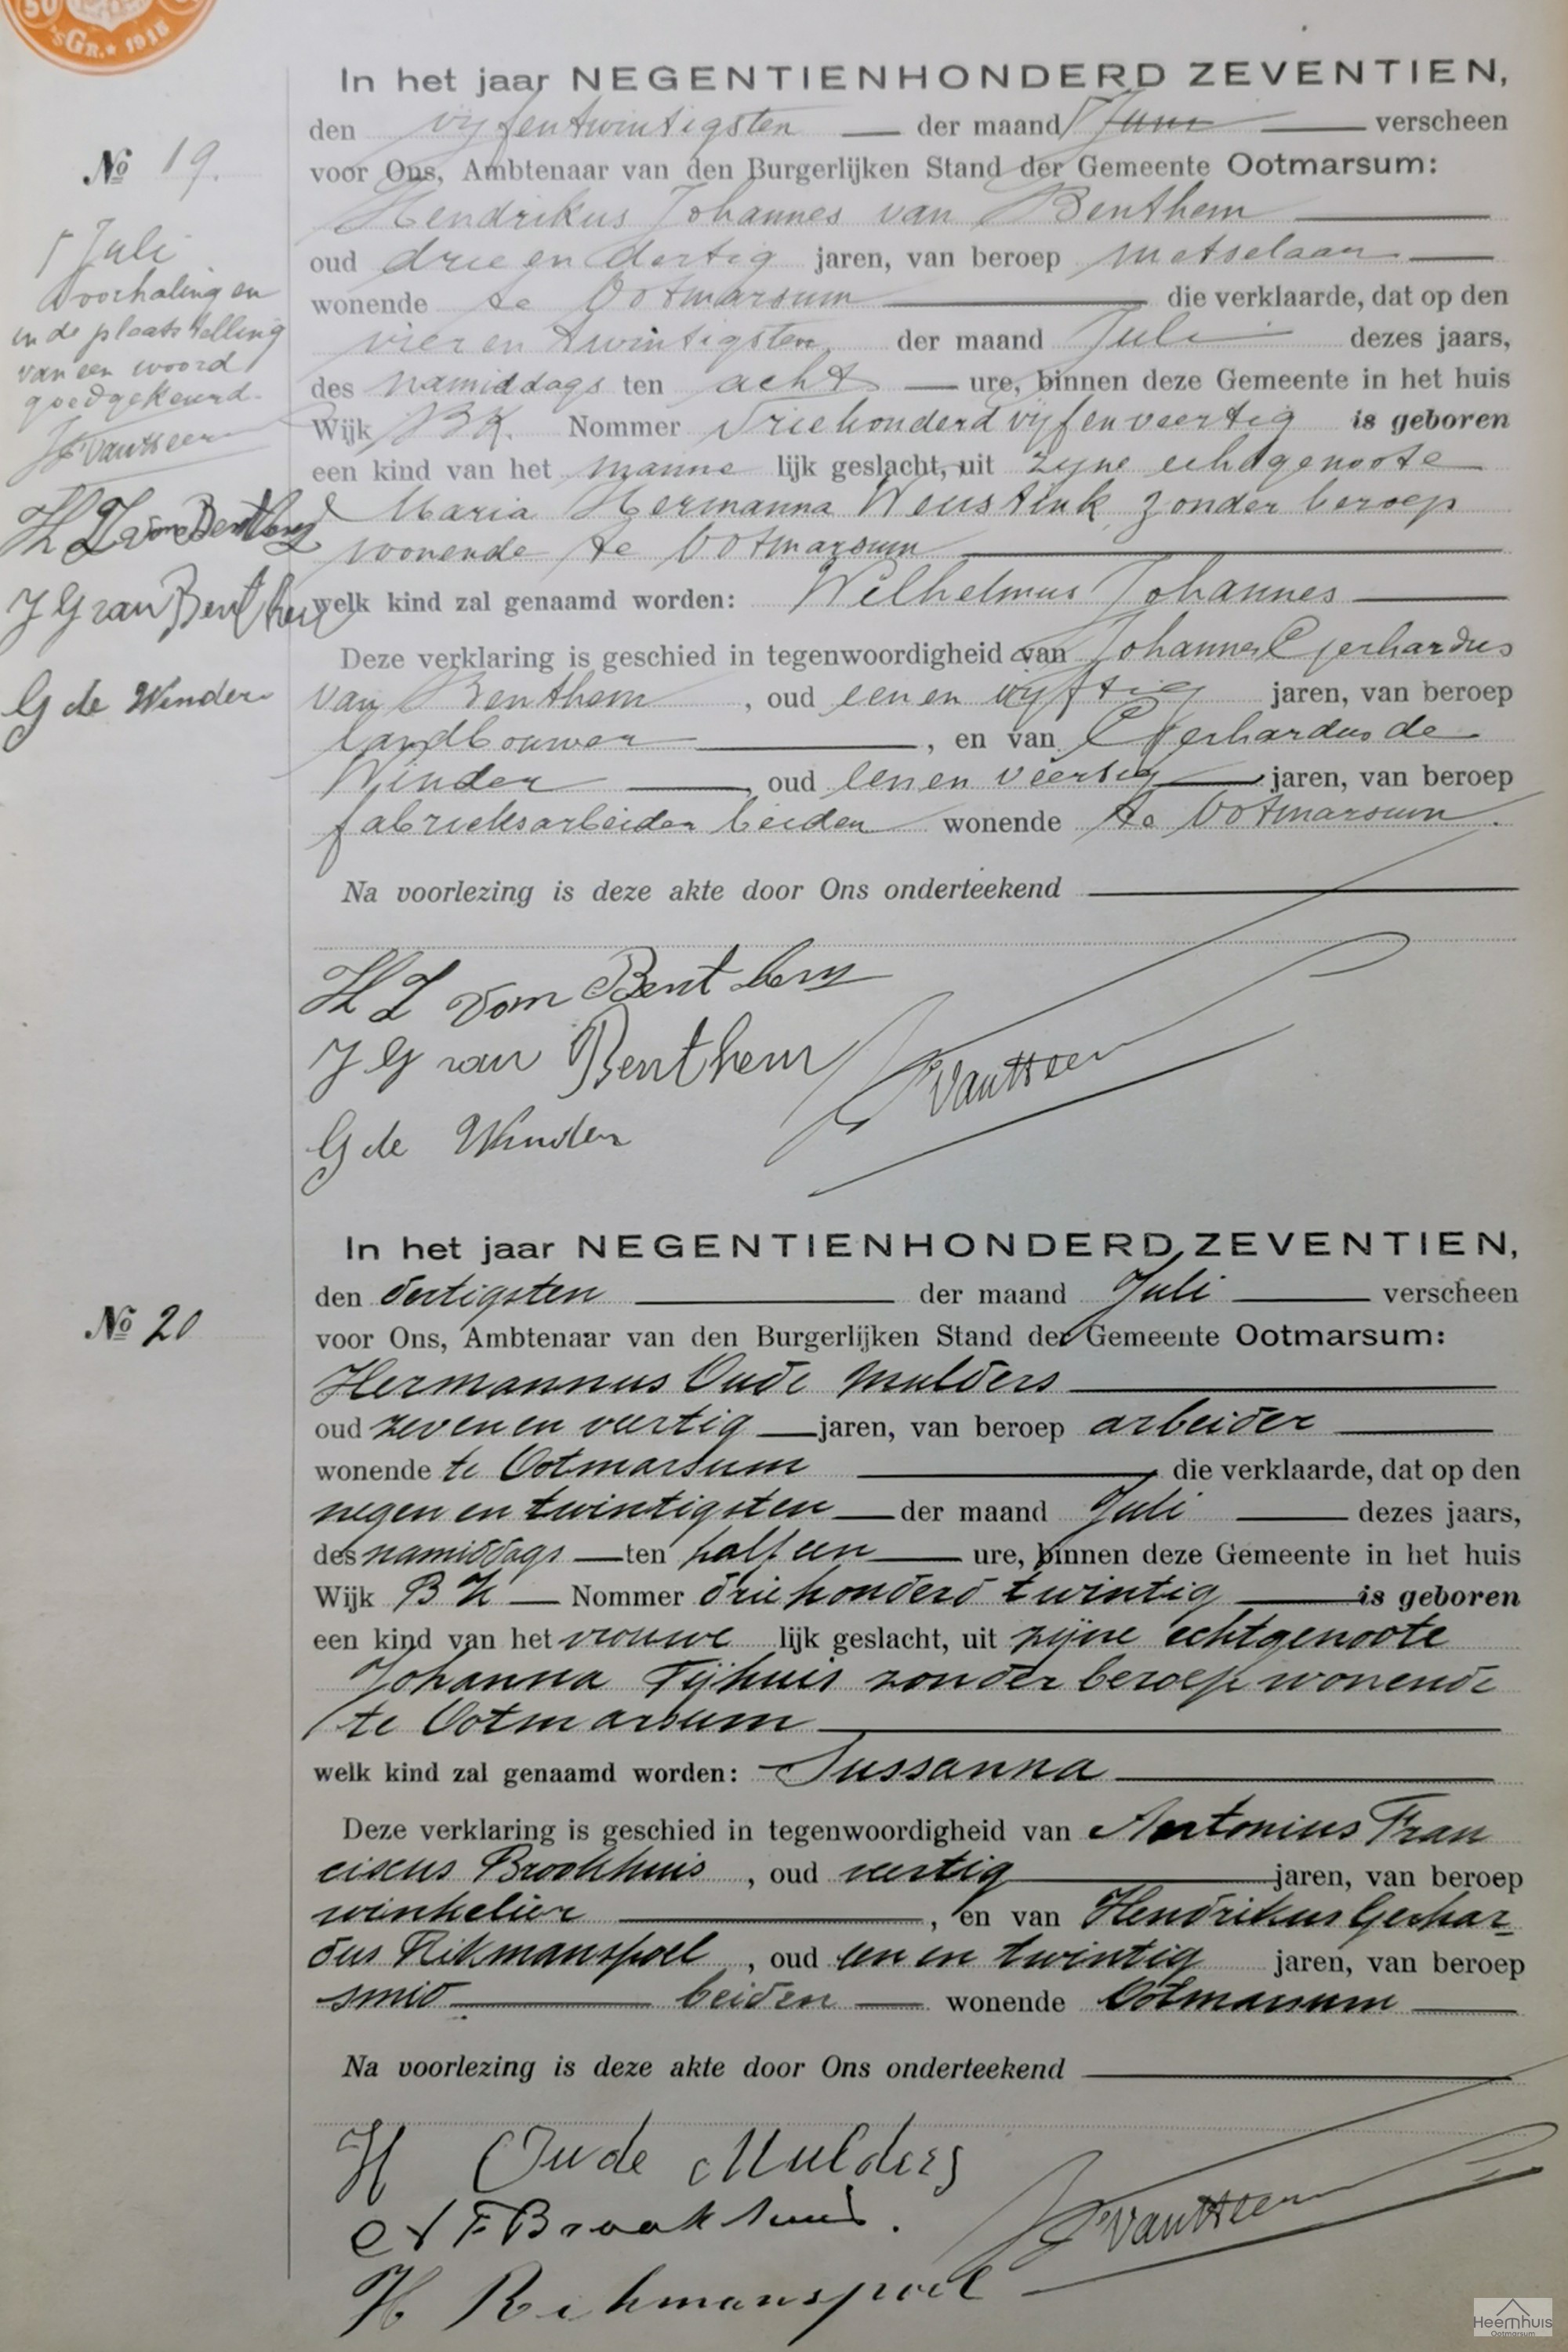 50
'S GR. ★ 1915
In het jaar NEGENTIENHONDERD ZEVENTIEN,
den vijfentwintigsten der maand Juni verscheen
voor Ons, Ambtenaar van den Burgerlijken Stand der Gemeente Ootmarsum:
Hendrikus Johannes van Benthem
oud drie en dertig jaren, van beroep metselaar
wonende te Ootmarsum die verklaarde, dat op den
vier en twintigsten der maand Juli dezes jaars,
des namiddags ten acht ure, binnen deze Gemeente in het huis
Wijk BK. Nommer driehonderd vijfenveertig is geboren
een kind van het manne lijk geslacht, uit zijne echtgenoote
Maria Hermanna Weustink, zonder beroep
wonende te Ootmarsum
welk kind zal genaamd worden: Wilhelmus Johannes
Deze verklaring is geschied in tegenwoordigheid van Johannes Gerhardus
van Benthem, oud een en vijftig jaren, van beroep
landbouwer, en van Gerhardus de
Winder, oud een en veertig jaren, van beroep
fabrieksarbeider beiden wonende te Ootmarsum.
Na voorlezing is deze akte door Ons onderteekend
H J van Benthem
J G van Benthem
G de Winder
No 19.
Juli
doorhaling en
in de plaatstelling
van een woord
goedgekeurd.
H J van Benthem
J G van Benthem
G de Winder
In het jaar NEGENTIENHONDERD ZEVENTIEN,
No 20
den dertigsten der maand Juli verscheen
voor Ons, Ambtenaar van den Burgerlijken Stand der Gemeente Ootmarsum:
Hermannus Oude Mulders
oud zeven en veertig jaren, van beroep arbeider
wonende te Ootmarsum die verklaarde, dat op den
negen en twintigsten der maand Juli dezes jaars,
des namiddags ten half een ure, binnen deze Gemeente in het huis
Wijk BK Nommer driehonderd twintig is geboren
een kind van het vrouwe lijk geslacht, uit zijne echtgenoote
Johanna Tijhuis zonder beroep wonende
te Ootmarsum
welk kind zal genaamd worden: Sussanna
Deze verklaring is geschied in tegenwoordigheid van Antonius Fran
ciscus Brookhuis, oud veertig jaren, van beroep
winkelier, en van Hendrikus Gerhar-
dus Rikmanspoel, oud een en twintig jaren, van beroep
smid beiden wonende Ootmarsum
Na voorlezing is deze akte door Ons onderteekend
H Oude Mulders
A F Brookhuis.
H Rikmanspoel
Heemhuis
Ootmarsum